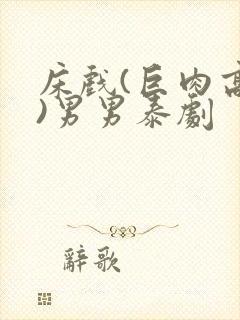 床戲(巨肉高
)男男泰劇
辭歌